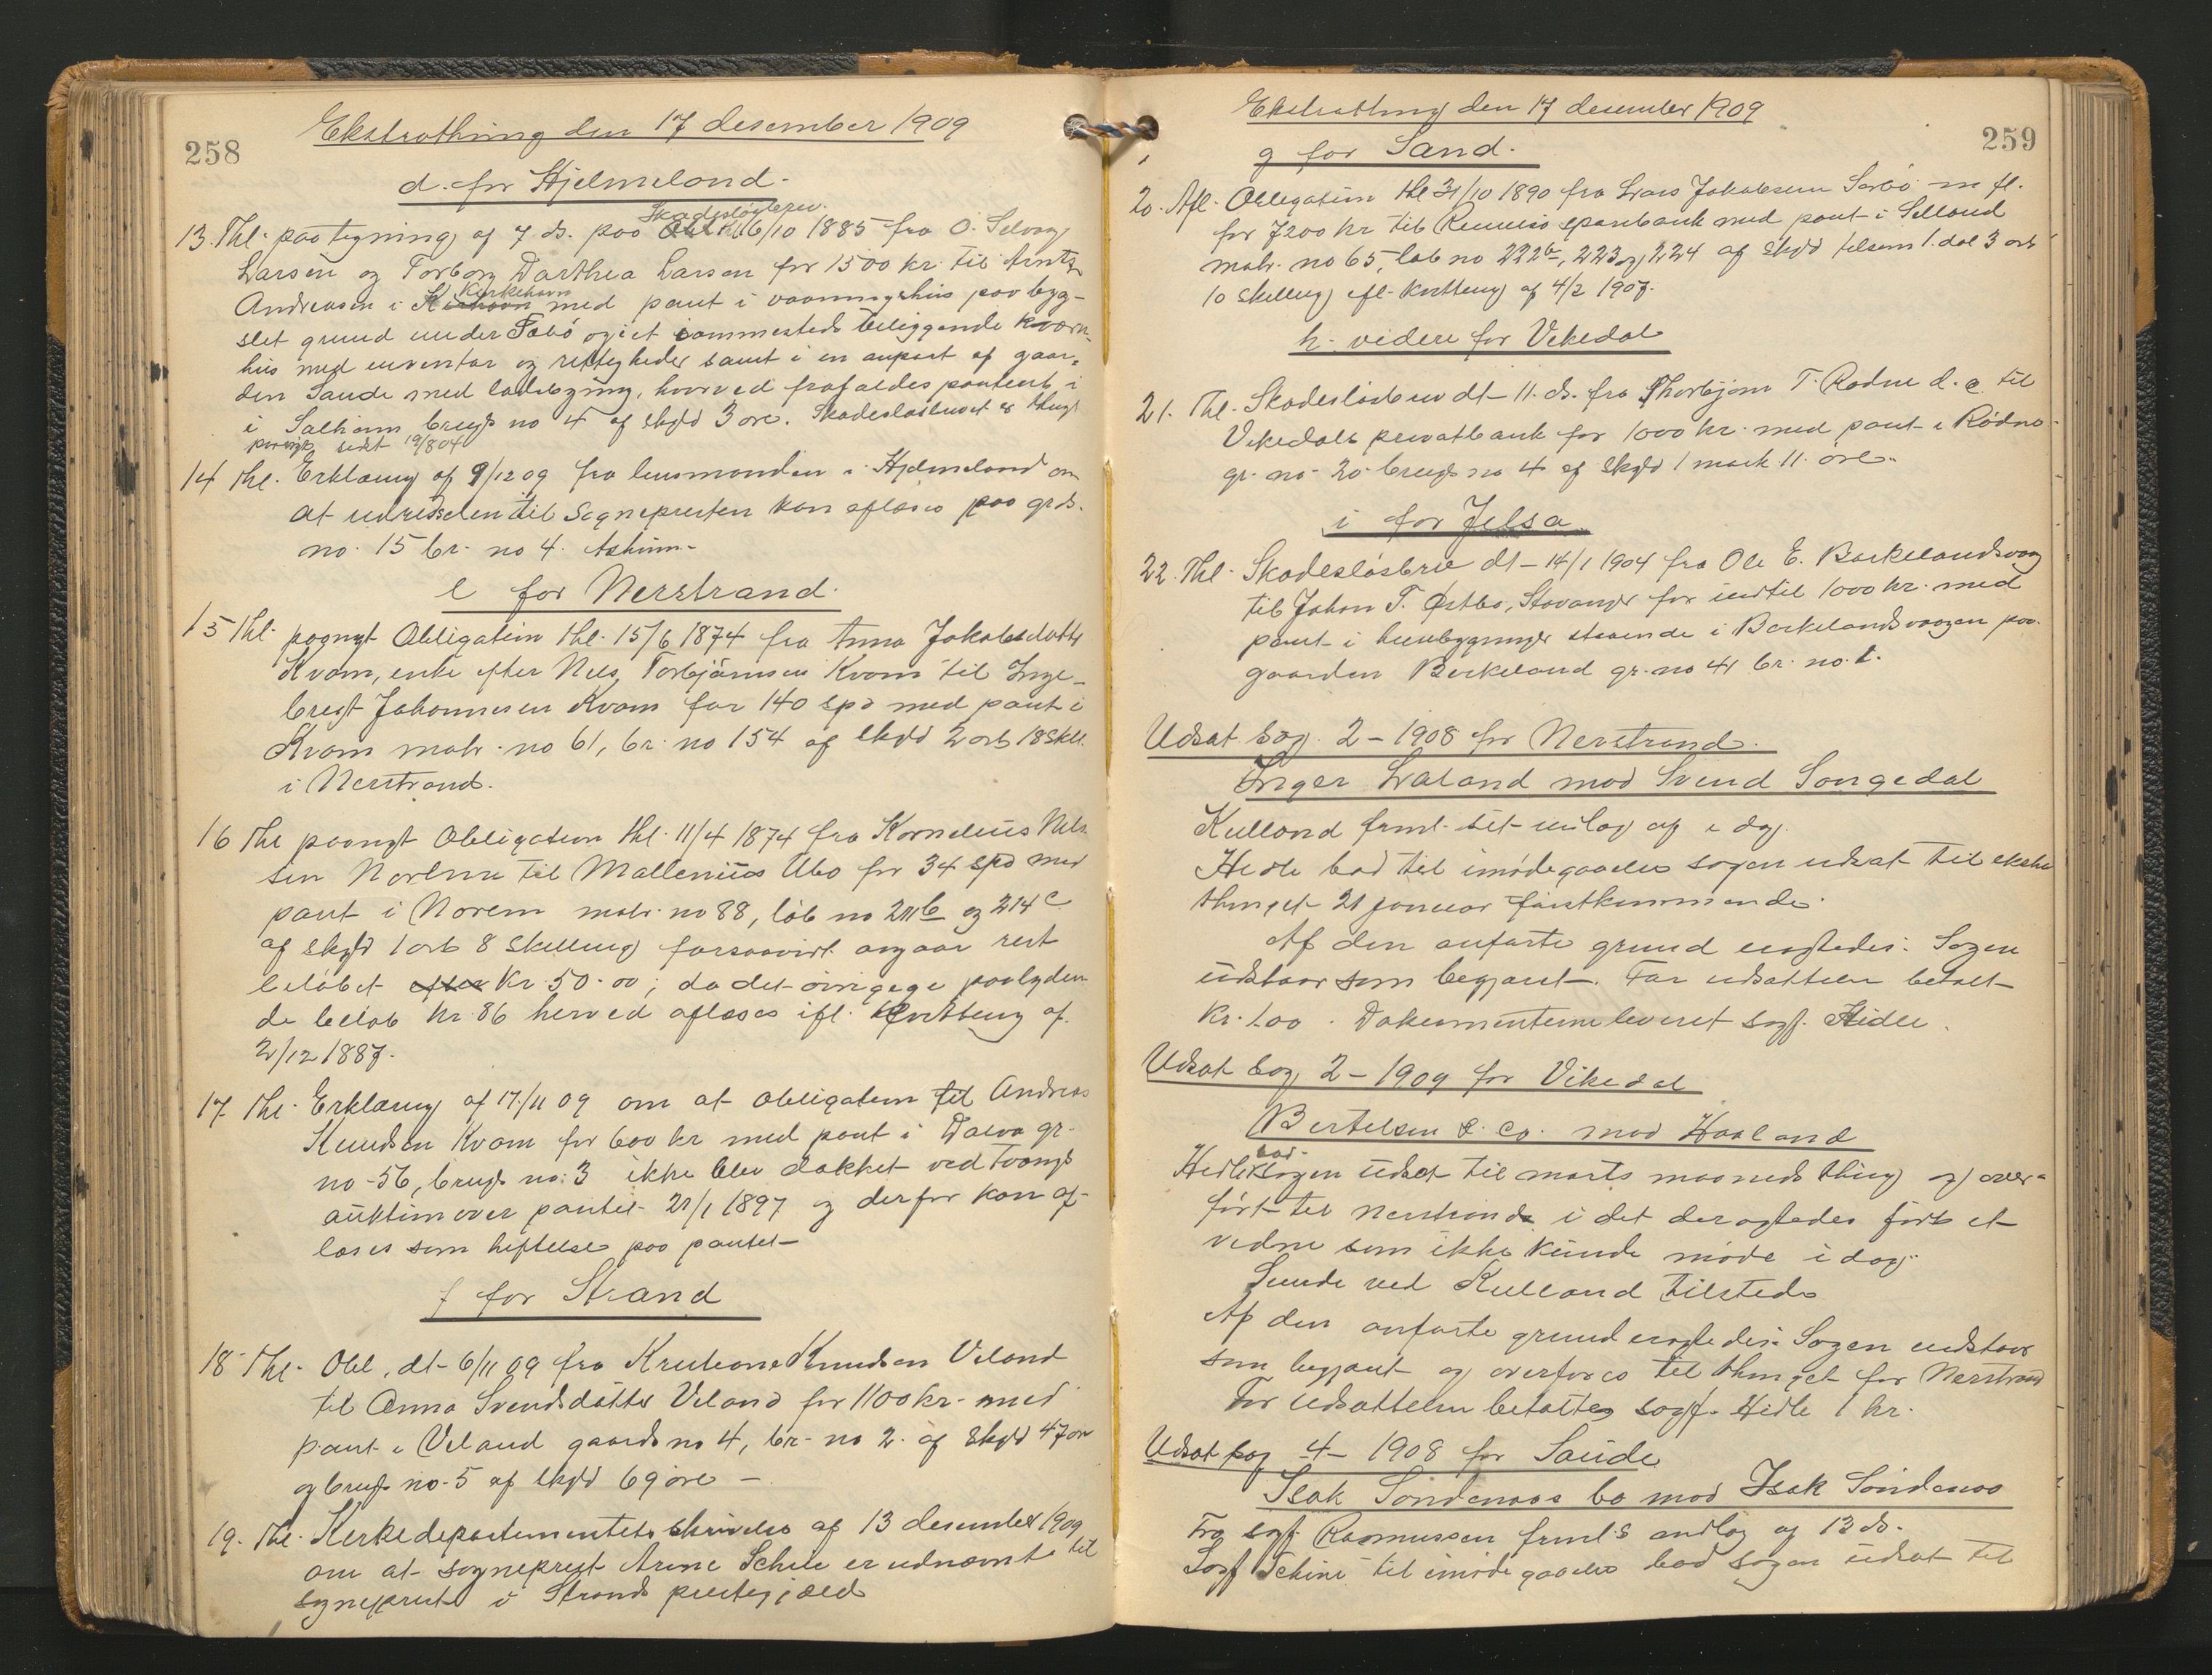 258
Ekstrathing den 17 desember 1909
d. for Hjelmeland.
Skadesløsbrev.
13. Thl. paategning af 7 ds. paa Obl. thl 6/10 1885 fra O. Selvaag
Larsen og Torborg Darthea Larsen for 1500 kr. til Arnt
Kirkehavn
Andreasen i med pant i vaaningshus paa byg-
slet grund under Fobø og i et sammesteds beliggende kværn-
hus med inventar og rettigheder samt i en anpart af gaar-
den Sande med ladebygning, hvorved frafaldes panteret i
i Salhim brugs no 4 af skyld 3 øre. Skadesløsbrevet er thingl
paanyt sidst 19/8 04
14 Thl. Erklæring af 9/12 09 fra lensmanden i Hjelmeland om
at udredselen til Sognepresten kan aflæses paa grds.
no. 15 br. no 4.
e for Nerstrand.
15 Thl. paanyt Obligation thl. 15/6 1874 fra Anna Jakobsdatter
Kvam, enke efter Nels Torbjørnsen Kvam til Inge-
bregt Johannesen Kvam for 140 spd med pant i
Kvam matr. no 61, br. no 154 af skyld 2 ort 18 skill.
i Nerstrand.
16 Thl paanyt Obligation thl. 11/4 1874 fra Kornelius Nils-
sen Norheim til Mallenius Ubo for 34 spd med
pant i Norem matr. no 88, løb no 211b og 214c
af skyld 1 ort 8 skilling forsaavidt angaar rest
beløbet efter Kr. 50.00; da det øvrigege paalyden-
de beløb kr. 86 herved aflæses ifl. kvittering af
2/12 1887.
17 Thl. Erklæring af 17/11 09 om at obligation til Andreas
Knudsen Kvam for 600 kr med pant i Dalva gr.
no-56, brugs no. 3 ikke blev dækket ved tvangs
auktion over pantet 21/1 1897 og derfor kan af-
læses som heftelse paa pantet-
f for Strand
18 Thl. Obl. dt- 6/11 09 fra Kristiane Knudsen Veland
til Anna Svendsdatter Veland for 1100 kr. med
pant i Veland gaards no 4, br. no 2. af skyld 47 øre
og brugs no. 5 af skyld 69 øre -
19. Thl. Kirkedepartementets skrivelse af 13 desember 1909
om at sogneprest Arne Schie er udnævnt til
sogneprest i Strands prestegjæld
259
Ekstrathing den 17 desember 1909
g for Sand.
20. Afl. Obligation thl 31/10 1890 fra Lars Jakobsen Sørbø m fl.
for 7200 kr til Rennesø sparebank med pant i Selland
matr. no 65, løb no 222b, 223 og 224 af skyld tilsam 1 dal 3 ort
10 skilling ifl. kvittering af 4/2 1907.
h. videre for Vikedal
21. Thl. Skadesløsbrev dt- 11. ds. fra Thorbjørn T. Rødne d. e. til
Vikedals privatbank for 1000 kr. med pant i Rødne
gr. no- 20 brugs no 4 af skyld 1 mark 11. øre.
i for Jelsa
22. Thl. Skadesløsbrev dt- 14/1 1904 fra Ole E. Barkelandsvaag
til Johan T. Østbø, Stavanger for indtil 1000 kr. med
pant i husbygninger staaende i Berkelandsvaagen paa
gaarden Berkeland gr. no 41 br. no. 1.
Udsat sag. 2 - 1908 for Nerstrand.
Inger Laland mod Svend Songedal
Kulland freml. sit indlæg af i dag.
Hidle bad til imødegaaelse sagen udsat til ekstra
thinget 21 januar førstkommende.
Af den anførte grund eragtedes: Sagen
udstaar som begjært-. For udsættelsen betalt
Kr. 1.00. Dokumenterne leveret sagf. Hidle.
Udsat sag 2 - 1909 for Vikedal
Bertelsen & co. mod Haaland
bad
Hidle sagen udsat til marts maaneds thing og over-
ført til Nerstrand i det der agtedes ført et
vidne som ikke kunde møde i dag.
Sunde ved Kulland tilstede
Af den anførte grund eragtedes: Sagen udstaar
som begjært og overføres til thinget for Nerstrand
For udsættelsen betaltes sagf. Hidle 1 kr.
Udsat sag 4 - 1908 for Saude
Isak Søndenaas bo mod Isak Søndenaa
Fra sagf. Rasmussen freml-s indlæg af 13 ds.
Sagf Schine til imødegaaelse bad sagen udsat til